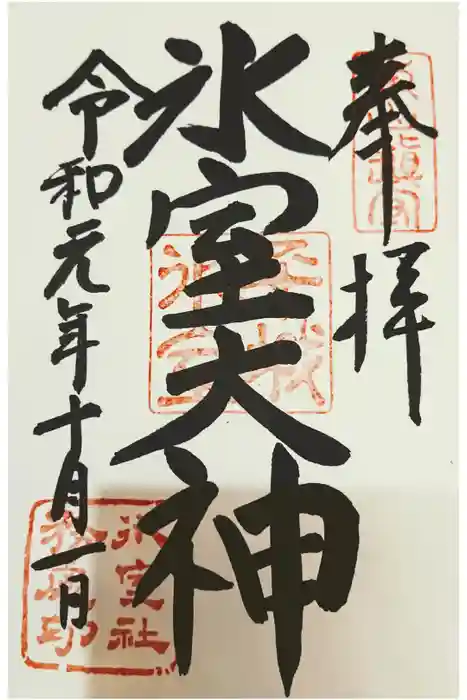 奉拝
氷室大神
令和元年十月一日
氷室社